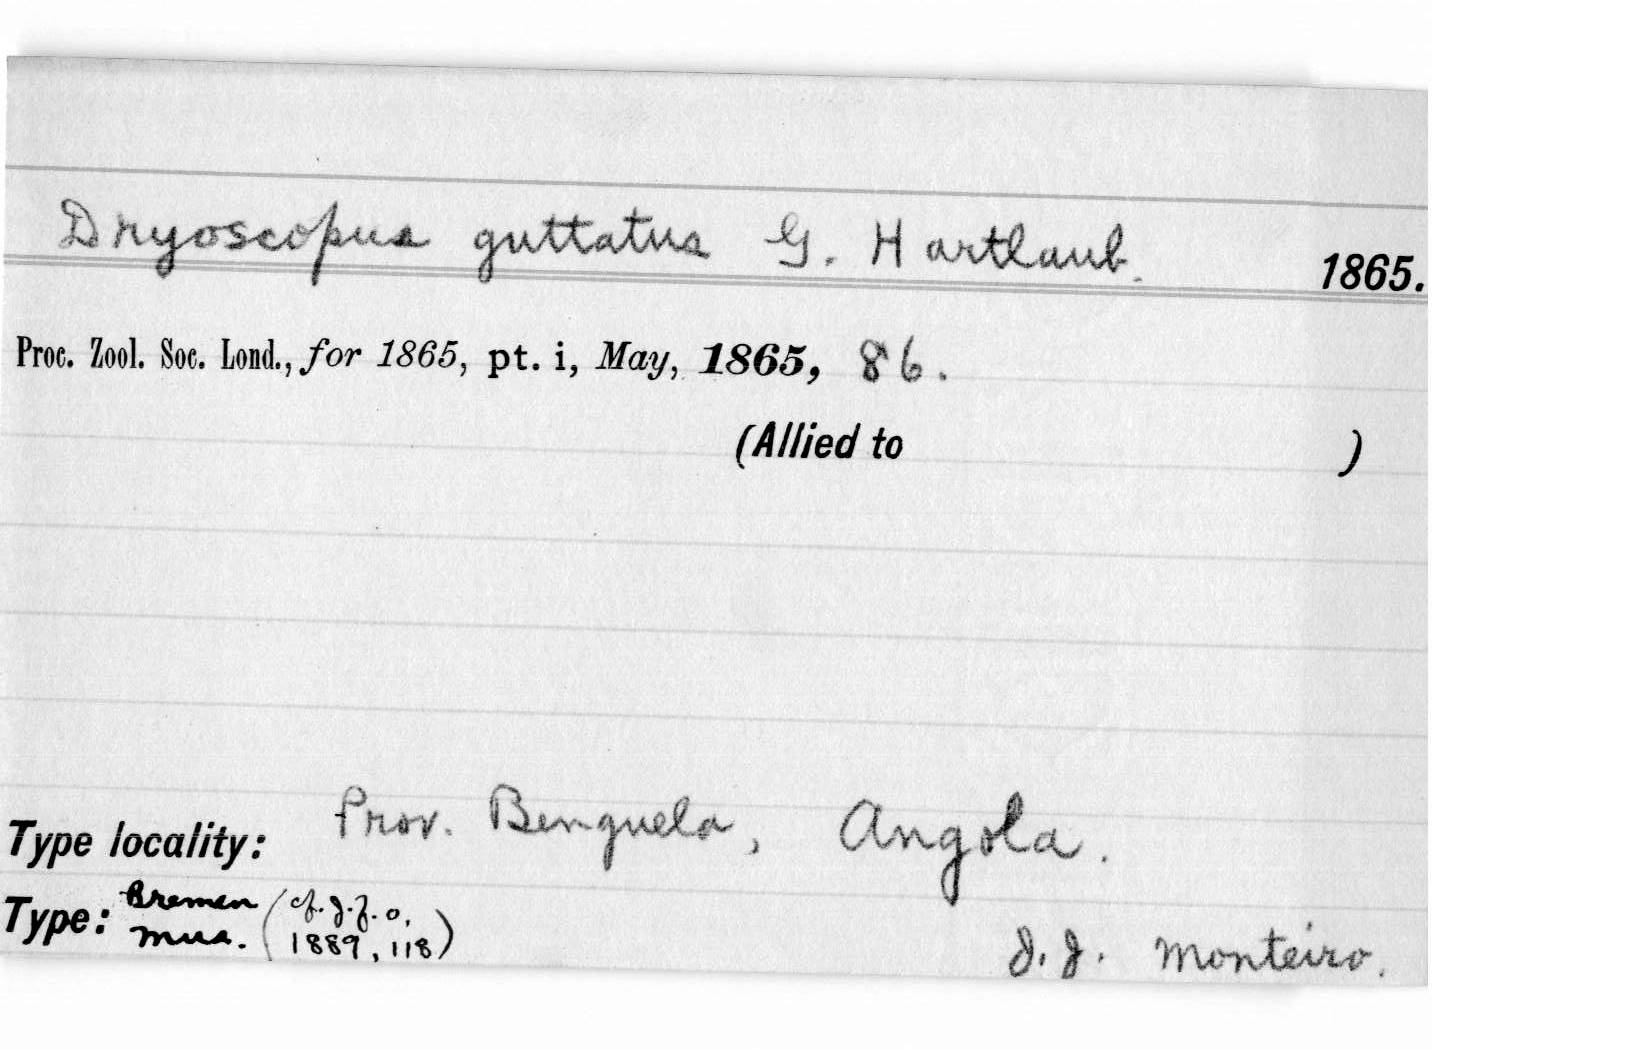 Dryoscopus guttatus G. Hartlaub. 1865.
Proc. Zool. Soc. Lond., for 1865, pt. i, May, 1865, 86.
(Allied to )
Type locality: Prov. Benguela, Angola.
Type: Bremen Mus. (cf. J.f.O, 1889, 118)
J. J. Monteiro.